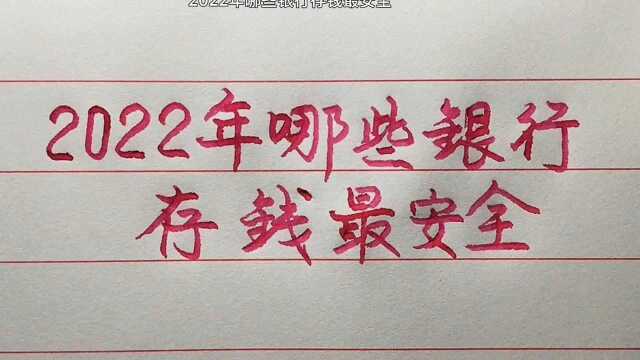 2022年哪些银行存钱最安全
2022年哪些銀行
存錢最安全